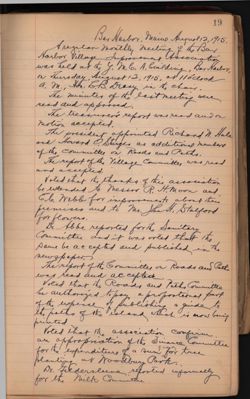 19
Bar Harbor, Maine August 12, 1915.
A regular Monthly Meeting of the Bar
Harbor Village Improvement Association
was held at the Y.M.C.A. Building, Bar Harbor,
on Thursday, August 12, 1915, at 11 o'clock
A.M., Mr. in the chair.
The minutes of the last meeting were
read and approved.
The Treasurer's report was read and on
motion accepted.
The president appointed Richard W. Hale
and Howard as additional members
of the Committee on Roads and Paths.
The report of the Village Committee was read
and accepted.
Voted that the thanks of the association
be extended to Messrs R. H. Moon and
Webb for improvements about their
premises and to Mr. John H. Stalford
for flowers.
Dr. Abbe reported for the Sanitary
Committee and it was voted that the
same be accepted and published in the
newspaper.
The report of the Committee on Roads and Paths
was read and accepted.
Voted that the Roads and Paths Committee
be authorized to pay a proportionate part
of the expense of publishing a guide to
the paths of the Island which is now being
printed.
Voted that the association confirm
an appropriation of the Finance Committee
for the expenditure of a sum for tree
planting at Park.
Dr. reported informally
for the Milk Committee